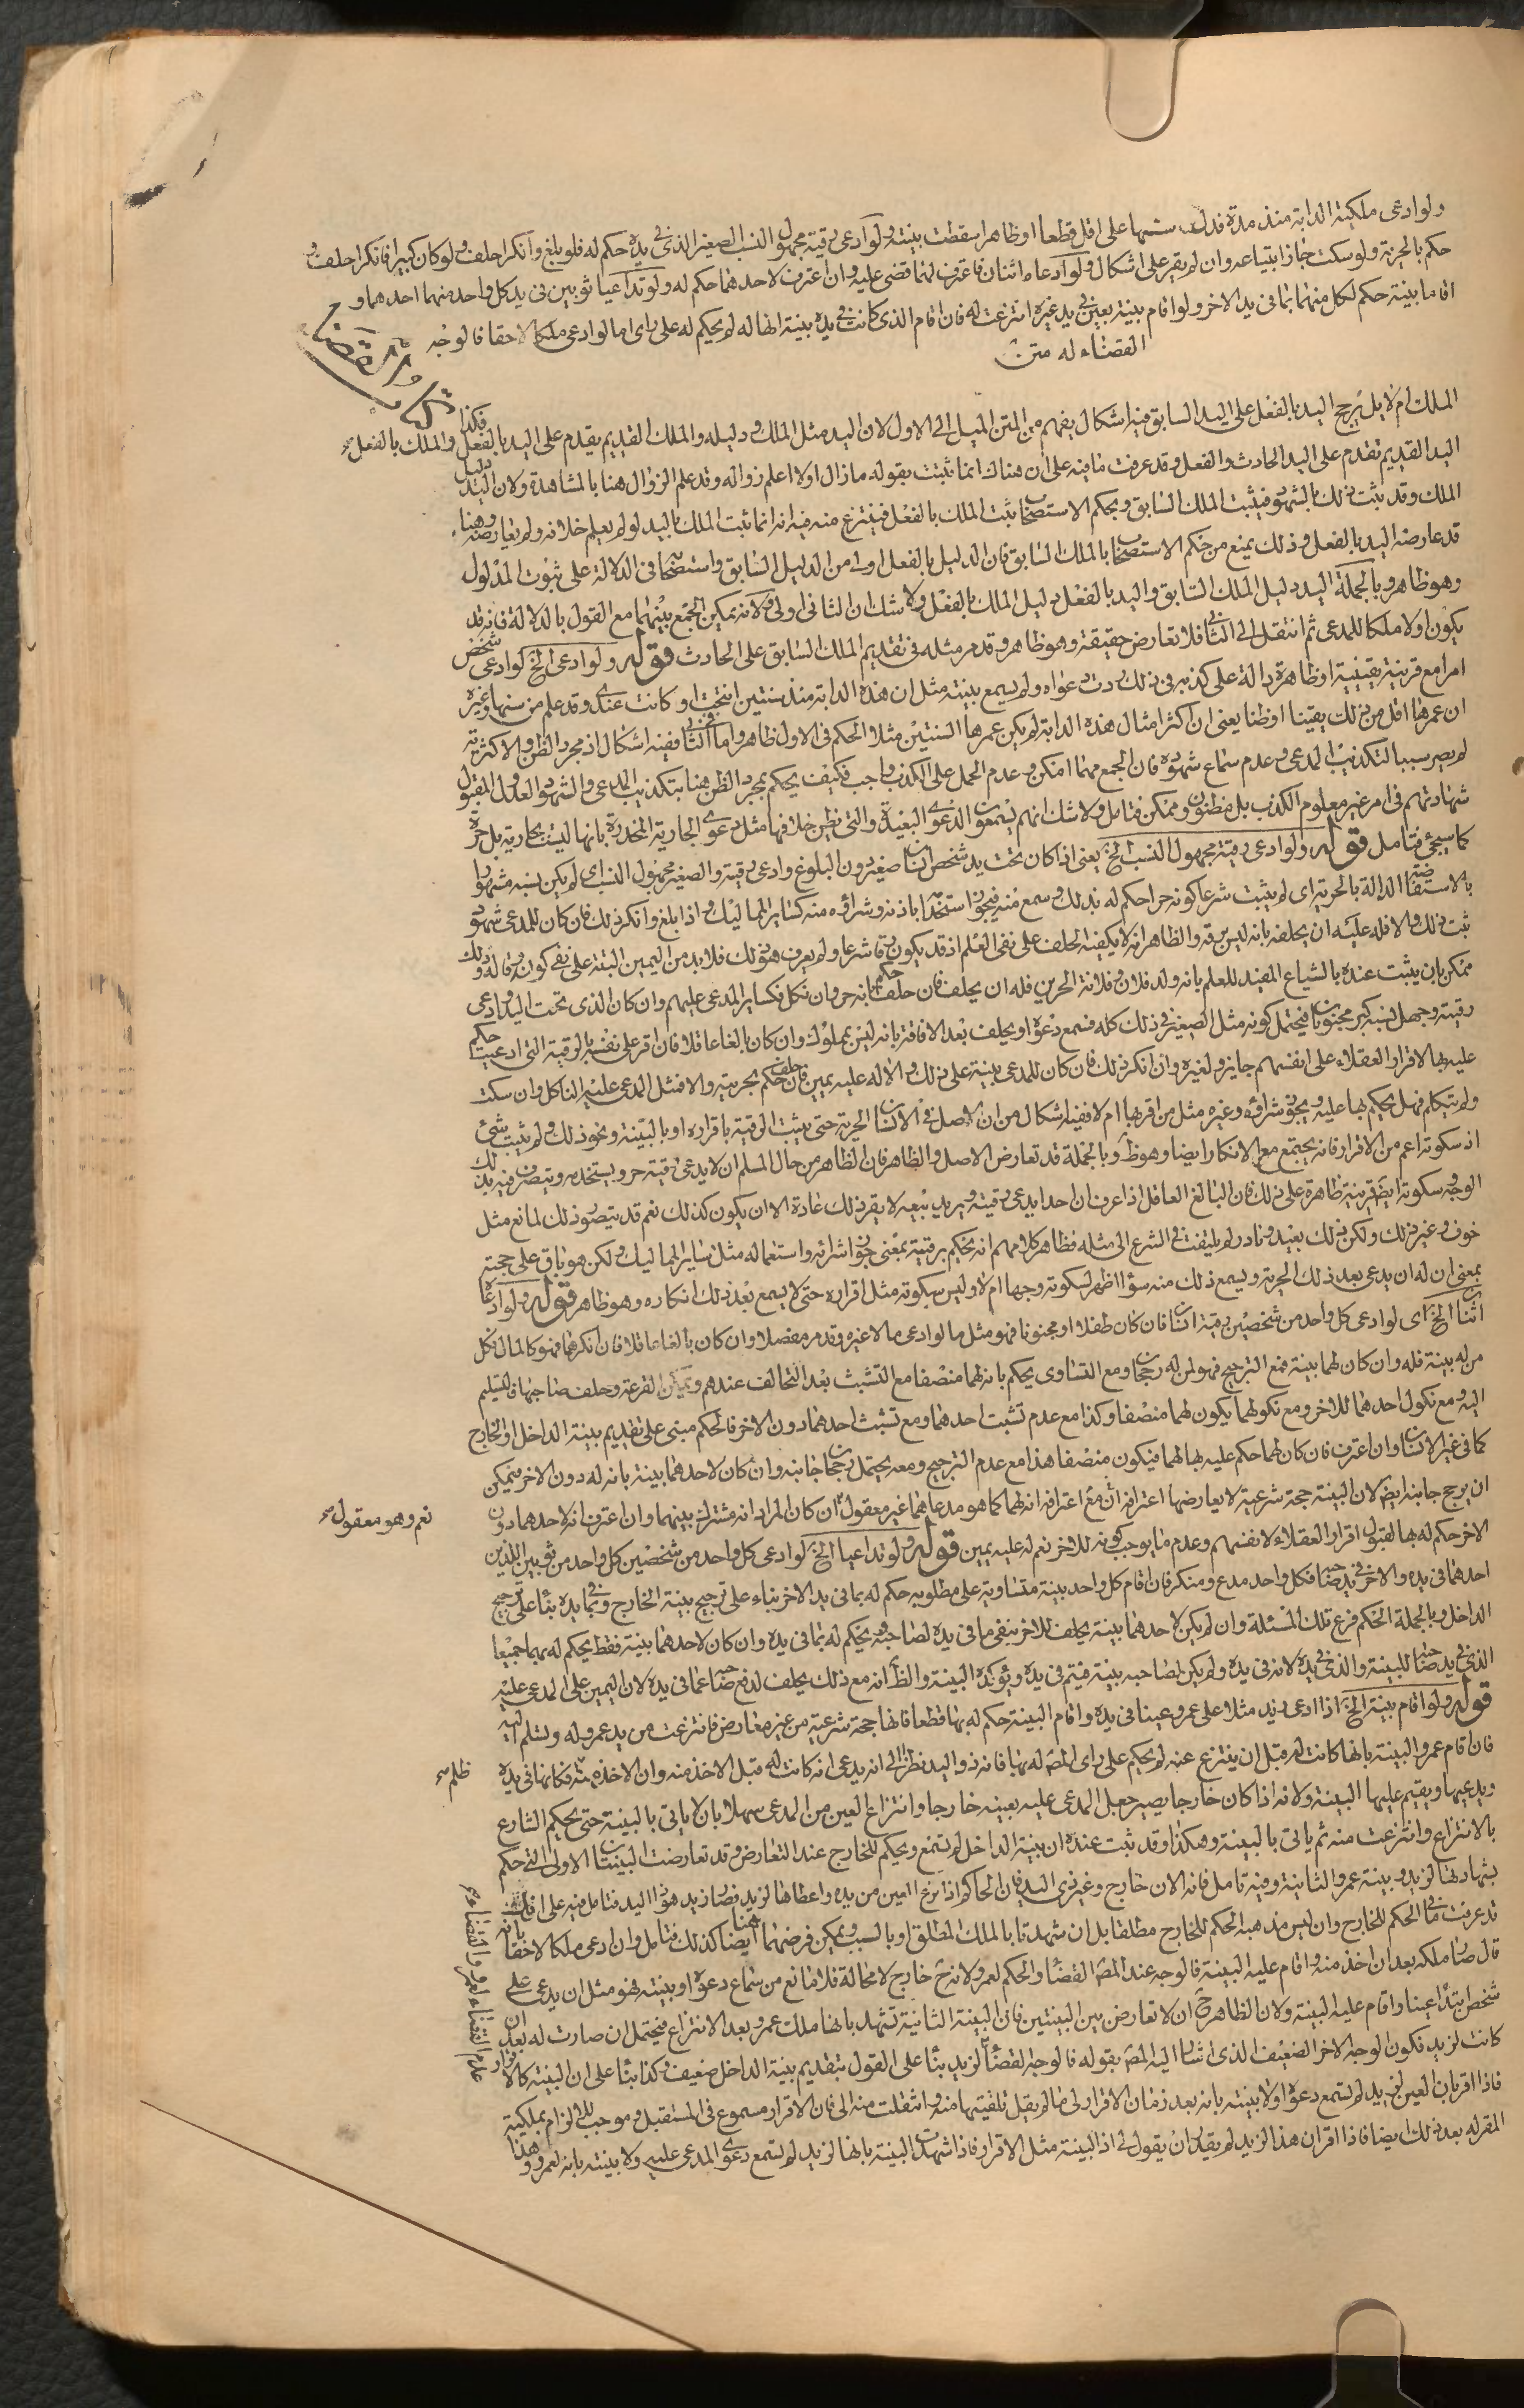 ولو ادعى ملكية الدابة منذ مدة فدل سنها على اقل قطعا او ظاهرا سقطت بينته ولو ادعى رقية مجهول النسب الصغير الذى فى يده حكم له فلو بلغ وانكر احلف ولو كان كبيرا فانكر احلف و
حكم بالحرية ولو سكت جاز ابتياعه وان لم يقر على اشكال ولو ادعاه اثنان فاعترف لهما قضى عليه وان اعترف لاحدهما حكم له ولو تداعيا ثوبين فى يد كل واحد منهما احدهما و
اقاما بينة حكم لكل منهما بما فى يد الاخر ولو اقام بينة بعين فى يد غيره انتزعت له فان اقام الذى كانت فى يده بينة انها له لم يحكم له على راى اما لو ادعى ملكا لاحقا فالوجه
القضاء له متن
كتاب القضاء
الملك ام لا بل يرجح اليد بالفعل على اليد السابق فيه اشكال يفهم من المتن الميل الى الاول لان اليد مثل الملك ودليله والملك القديم يقدم على اليد بالفعل والملك بالفعل فكذا
اليد القديم تقدم على اليد الحادث والفعل وقد عرفت ما فيه على ان هناك انما ثبتت بقوله ما زال اولا اعلم زواله وقد علم الزوال هنا بالمشاهدة ولان اليد دليل
الملك وقد يثبت ذلك بالشهود فيثبت الملك السابق وبحكم الاستصحاب ثبت الملك بالفعل فينتزع منه فيه انه انما ثبت الملك باليد لو لم يعلم خلافه ولم يعارضه وهنا
قد عارضه اليد بالفعل وذلك يمنع من حكم الاستصحاب بالملك السابق فان الدليل بالفعل اولى من الدليل السابق واستصحابه فى الدلالة على ثبوت المدلول
وهو ظاهر وبالجملة اليد دليل الملك السابق واليد بالفعل دليل الملك بالفعل ولا شك ان الثانى اولى ولانه يمكن الجمع بينهما مع القول بالدلالة فانه قد
يكون اولا ملكا للمدعى ثم انتقل الى الثانى فلا تعارض حقيقة وهو ظاهر وقد مر مثله فى تقديم الملك السابق على الحادث قوله ولو ادعى الخ لو ادعى شخص
امرا مع قرينة يقينية او ظاهرة دالة على كذبه فى ذلك ردت دعواه ولم يسمع بينته مثل ان هذه الدابة منذ سنتين انتجت او كانت عندى وقد علم من سنها وغيره
ان عمرها اقل من ذلك يقينا او ظنا يعنى ان اكثر امثال هذه الدابة لم يكن عمرها السنتين مثلا الحكم فى الاول ظاهر واما فى الثانى ففيه اشكال اذ مجرد الظن والاكثرية
لم يصر سببا لتكذيب المدعى وعدم سماع شهوده فان الجمع مهما امكن وعدم الحمل على الكذب واجب فكيف يحكم بمجرد الظن هنا بتكذيب المدعى والشهود العدل المقبول
شهادتهم فى امر غير معلوم الكذب بل مظنون وممكن فتامل ولا شك انهم يسمعون الدعوى البعيدة والتى يظن خلافها مثل دعوى الجارية المخدرة بانها ليست بجارية بل حرة
كما سيجئ فتامل قوله ولو ادعى رقية مجهول النسب الخ يعنى اذا كان تحت يد شخص انسان صغير دون البلوغ وادعى رقيته والصغير مجهول النسب اى لم يكن نسبه مشهورا
بالاستفاضة الدالة بالحرية اى لم يثبت شرعا كونه حرا حكم له بذلك وسمع منه فيجوز استخدامه باذنه وشراؤه منه كساير المماليك واذا بلغ وانكر ذلك فان كان للمدعى شهود
ثبت ذلك والا فله عليه ان يحلفه بانه ليس برقه والظاهر انه لا يكفيه الحلف على نفى العلم اذ قد يكون رقا شرعا ولم يعرف هو ذلك فلا بد من اليمين البتة على نفى كونه رقا له وذلك
ممكن بان يثبت عنده بالشياع المفيد للعلم بانه ولد فلان وفلانة الحرين فله ان يحلف فان حلف حكم بانه حر وان نكل فكساير المدعى عليهم وان كان الذى تحت اليد وادعى
رقيته وجهل نسبه كبير مجنونا فيحتمل كونه مثل الصغير فى ذلك كله فسمع دعوة او يحلف بعد الافاقة بانه ليس بمملوك وان كان بالغا عاقلا فان اقر على نفسه بالرقية التى ادعيت حكم
عليه بها لاقرار العقلاء على انفسهم جايز ولغيره وان انكر ذلك فان كان للمدعى بينة على ذلك والا له عليه يمين فان حلف حكم بحريته والا فمثل المدعى عليه الناكل وان سكت
ولم يتكلم فهل يحكم بها عليه ويجوز شراؤه وغيره مثل من اقر بها ام لا ففيه اشكال من ان الاصل فى الانسان الحرية حتى يثبت الرقية باقراره او بالبينة ونحو ذلك ولم يثبت شئ
اذ سكوته اعم من الاقرار فانه يجتمع مع الانكار ايضا وهو ظ وبالجملة قد تعارض الاصل والظاهر فان الظاهر من حال المسلم ان لا يدعى رقية حر ويستخدمه ويتصرف فيه بذلك
الوجه وسكوته ايضا قرينة ظاهرة على ذلك فان البالغ العاقل اذا عرف ان احدا يدعى رقيته ويريد بيعه لا يقر ذلك عادة الا ان يكون كذلك نعم قد يتصور ذلك لمانع مثل
خوف وغير ذلك ولكن ذلك بعيد ونادر لم يلتفت فى الشرع الى مثله فظاهر كلامهم انه يحكم برقيته بمعنى جواز شرائه واستعماله مثل ساير المماليك ولكن هو باق على حجته
بمعنى ان له ان يدعى بعد ذلك الحرية ويسمع ذلك منه سواء اظهر لسكوته وجها ام لا وليس سكوته مثل اقراره حتى لا يسمع بعد ذلك انكاره وهو ظاهر قوله ولو ادعاه
اثنان الخ اى لو ادعى كل واحد من شخصين رقية انسان فان كان طفلا او مجنونا فهو مثل ما لو ادعى مالا غيره وقد مر مفصلا وان كان بالغا عاقلا فان انكرهما فهو كالمال فكل
من له بينة فله وان كان لهما بينة فمع الترجيح فهو لمن له رجحان ومع التساوى يحكم بانه لهما منصفا مع التشبث بعد التحالف عندهم ويمكن القرعة وحلف صاحبها فالتسليم
اليه ومع نكول احدهما للاخر ومع نكولهما يكون لهما منصفا وكذا مع عدم تشبث احدهما ومع تشبث احدهما دون الاخر فالحكم مبنى على تقديم بينة الداخل او الخارج
كما فى غير الانسان وان اعترف فان كان لهما حكم عليه بها لهما فيكون منصفا هذا مع عدم الترجيح ومعه يحتمل رجحان جانبه وان كان لاحدهما بينة بانه له دون الاخر فيمكن
ان يرجح جانبه ايضا لان البينة حجة شرعية لا يعارضها اعترافه اذ مع اعترافه انه لهما كما هو مدعاهما غير معقول ان كان المراد انه مشترك بينهما وان اعترف انه لاحدهما دون
نعم وهو معقول
الاخر حكم له بها لقبول اقرار العقلاء لانفسهم وعدم ما يوجب كونه للاخر نعم له عليه يمين قوله ولو تداعيا الخ لو ادعى كل واحد من شخصين كل واحد من ثوبين اللذين
احدهما فى يده والاخر فى يد صاحبه فكل واحد مدع ومنكر فان اقام كل واحد بينة متساوية على مطلوبه حكم له بما فى يد الاخر بناء على ترجيح بينة الخارج وبما فى يده بناء على ترجيح
الداخل وبالجملة الحكم فرع تلك المسئلة وان لم يكن لاحدهما بينة يحلف للاخر بنفى ما فى يده لصاحبه ويحكم له بما فى يده وان كان لاحدهما بينة فقط يحكم له بهما جميعا
الذى فى يد صاحبه للبينة والذى فى يده لانه فى يده ولم يكن لصاحبه بينة فيتم فى يده ويؤكده البينة والظ انه مع ذلك يحلف لدفع صاحبه عما فى يده لان اليمين على المدعى عليه
قوله ولو اقام بينة الخ اذا ادعى زيد مثلا على عمرو عينا فى يده واقام البينة حكم له بها قطعا فانها حجة شرعية من غير معارض فانتزعت من يد عمرو له وتسلم اليه
فان اقام عمرو البينة بانها كانت له قبل ان ينتزع عنه لم يحكم على راى المصـ له بها فانه ذو اليد نظرا الى انه يدعى انه كانت له قبل الاخذ منه وان الاخذ منه فكانها فى يده
ظلم
ويدعيها ويقيم عليها البينة ولانه اذا كان خارجا يصير جعل المدعى عليه بعينه خارجا وانتزاع العين من المدعى سهلا بان لا ياتى بالبينة حتى يحكم الشارع
بالانتزاع وانتزعت منه ثم ياتى بالبينة وهكذا وقد ثبت عنده ان بينة الداخل لم تسمع ويحكم للخارج عند التعارض وقد تعارضت البينتان الاولى التى حكم
بشهادتها لزيد وبينة عمرو الثانية وفيه تامل فانه الان خارج وغير ذى اليد فان الحاكم اذا نزع العين من يده واعطاها لزيد فصار زيد هو ذا اليد فتامل فيه على انك
قد عرفت ما فى الحكم للخارج وان ليس مذهبه الحكم للخارج مطلقا بل ان شهدتا بالملك المطلق او بالسبب ويمكن فرضهما هنا ايضا كذلك فتامل وان ادعى ملكا لاحقا بانه
قال صار ملكه بعد ان اخذ منه واقام عليه البينة فالوجه عند المصـ القضاء والحكم لعمرو لانه ح خارج لا محالة فلا مانع من سماع دعوة او بينته فهو مثل ان يدعى على
شخص ابتداء عينا واقام عليه البينة ولان الظاهر ح ان لا تعارض بين البينتين فان البينة الثانية تشهد بانها ملك عمرو بعد الانتزاع فيحتمل ان صارت له بعد ان
عدم القضاء لعمرو والقضاء
كانت لزيد فكون الوجه الاخر الضعيف الذى اشار اليه المصـ بقوله فالوجه لقضاء لزيد بناء على القول بتقديم بينة الداخل ضعيف وكذا بناء على ان البينة كالاقرار
فاذا اقر بان العين لزيد لم تسمع دعوة اولا بينته بانه بعد زمان الاقرار لى ما لم يقل تلقيتها منه وانتقلت منه الى فان الاقرار مسموع فى المستقبل وموجب للالزام بملكية
المقر له بعد ذلك ايضا فاذا اقر ان هذا لزيد لم يقدر ان يقول لى اذ البينة مثل الاقرار فاذا شهدت البينة بانها لزيد لم تسمع دعوى المدعى عليه ولا بينته بانه لعمرو وهذا